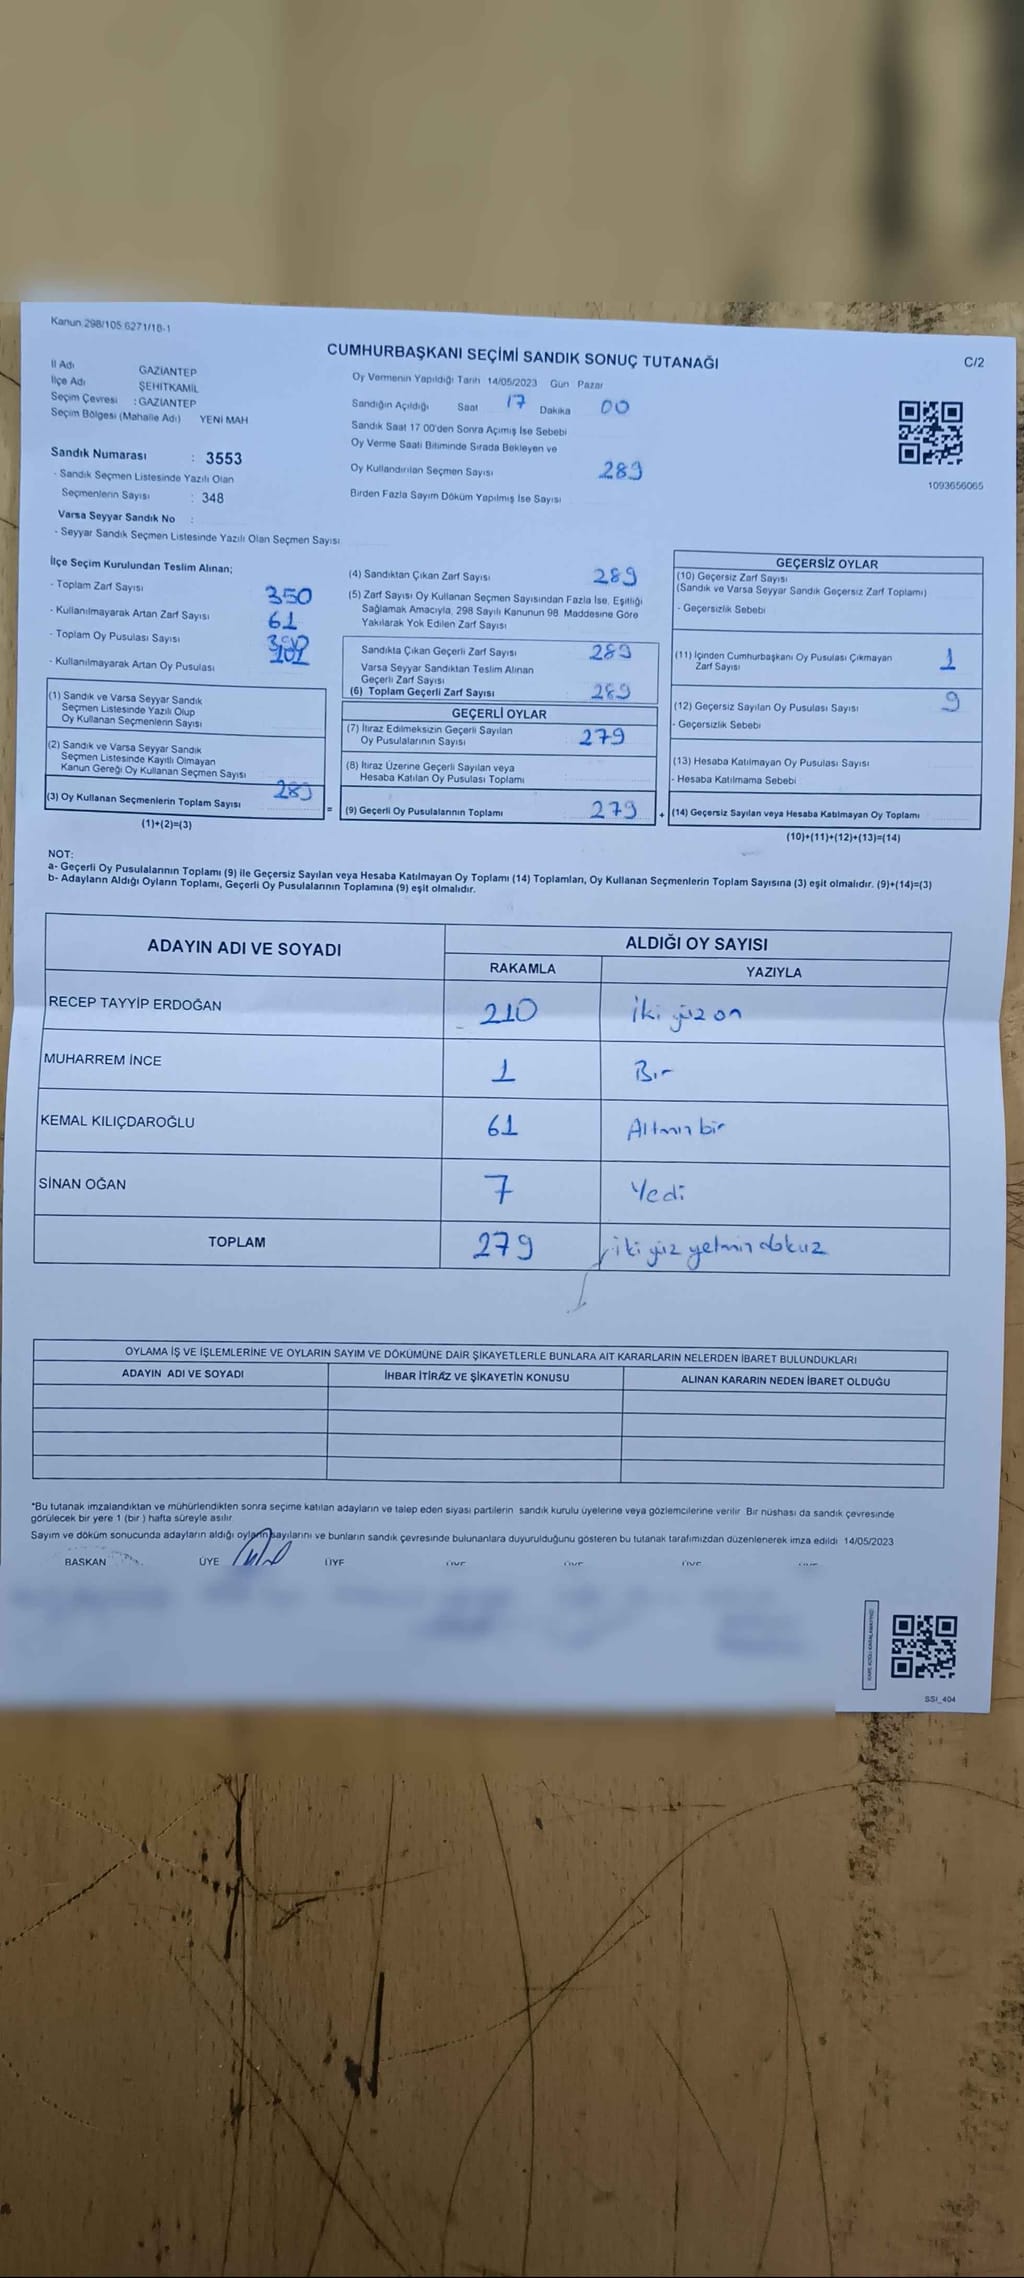 Kanun 298/105 6271/18-1
CUMHURBAŞKANI SEÇİMİ SANDIK SONUÇ TUTANAĞI
C/2
İl Adı GAZİANTEP
İlçe Adı ŞEHİTKAMİL
Seçim Çevresi : GAZİANTEP
Seçim Bölgesi (Mahalle Adı) YENİ MAH
Sandık Numarası : 3553
- Sandık Seçmen Listesinde Yazılı Olan
Seçmenlerin Sayısı : 348
Varsa Seyyar Sandık No :
- Seyyar Sandık Seçmen Listesinde Yazılı Olan Seçmen Sayısı
Oy Vermenin Yapıldığı Tarih 14/05/2023 Gün Pazar
Sandığın Açıldığı Saat 17 Dakika 00
Sandık Saat 17 00'den Sonra Açımış İse Sebebi
Oy Verme Saati Bitiminde Sırada Bekleyen ve
Oy Kullandırılan Seçmen Sayısı 289
Birden Fazla Sayım Döküm Yapılmış İse Sayısı
1093656065
İlçe Seçim Kurulundan Teslim Alınan;
- Toplam Zarf Sayısı 350
- Kullanılmayarak Artan Zarf Sayısı 61
- Toplam Oy Pusulası Sayısı
- Kullanılmayarak Artan Oy Pusulası
(1) Sandık ve Varsa Seyyar Sandık
Seçmen Listesinde Yazılı Olup
Oy Kullanan Seçmenlerin Sayısı
(2) Sandık ve Varsa Seyyar Sandık
Seçmen Listesinde Kayıtlı Olmayan
Kanun Gereği Oy Kullanan Seçmen Sayısı
(3) Oy Kullanan Seçmenlerin Toplam Sayısı 289
(1)+(2)=(3)
(4) Sandıktan Çıkan Zarf Sayısı 289
(5) Zarf Sayısı Oy Kullanan Seçmen Sayısından Fazla İse, Eşitliği
Sağlamak Amacıyla, 298 Sayılı Kanunun 98. Maddesine Göre
Yakılarak Yok Edilen Zarf Sayısı
Sandıkta Çıkan Geçerli Zarf Sayısı 289
Varsa Seyyar Sandıktan Teslim Alınan
Geçerli Zarf Sayısı
(6) Toplam Geçerli Zarf Sayısı 289
GEÇERLİ OYLAR
(7) İtiraz Edilmeksizin Geçerli Sayılan
Oy Pusulalarının Sayısı 279
(8) İtiraz Üzerine Geçerli Sayılan veya
Hesaba Katılan Oy Pusulası Toplamı
= (9) Geçerli Oy Pusulalarının Toplamı 279
GEÇERSİZ OYLAR
(10) Geçersiz Zarf Sayısı
(Sandık ve Varsa Seyyar Sandık Geçersiz Zarf Toplamı)
- Geçersizlik Sebebi
(11) İçinden Cumhurbaşkanı Oy Pusulası Çıkmayan
Zarf Sayısı 1
(12) Geçersiz Sayılan Oy Pusulası Sayısı 9
- Geçersizlik Sebebi
(13) Hesaba Katılmayan Oy Pusulası Sayısı
- Hesaba Katılmama Sebebi
+ (14) Geçersiz Sayılan veya Hesaba Katılmayan Oy Toplamı
(10)+(11)+(12)+(13)=(14)
NOT:
a- Geçerli Oy Pusulalarının Toplamı (9) ile Geçersiz Sayılan veya Hesaba Katılmayan Oy Toplamı (14) Toplamları, Oy Kullanan Seçmenlerin Toplam Sayısına (3) eşit olmalıdır. (9)+(14)=(3)
b- Adayların Aldığı Oyların Toplamı, Geçerli Oy Pusulalarının Toplamına (9) eşit olmalıdır.
ADAYIN ADI VE SOYADI ALDIĞI OY SAYISI
RAKAMLA YAZIYLA
RECEP TAYYİP ERDOĞAN 210 iki yüz on
MUHARREM İNCE 1 Bir
KEMAL KILIÇDAROĞLU 61 Altmış bir
SİNAN OĞAN 7 Yedi
TOPLAM 279 iki yüz yetmiş dokuz
OYLAMA İŞ VE İŞLEMLERİNE VE OYLARIN SAYIM VE DÖKÜMÜNE DAİR ŞİKAYETLERLE BUNLARA AİT KARARLARIN NELERDEN İBARET BULUNDUKLARI
ADAYIN ADI VE SOYADI İHBAR İTİRAZ VE ŞİKAYETİN KONUSU ALINAN KARARIN NEDEN İBARET OLDUĞU
*Bu tutanak imzalandıktan ve mühürlendikten sonra seçime katılan adayların ve talep eden siyasi partilerin sandık kurulu üyelerine veya gözlemcilerine verilir Bir nüshası da sandık çevresinde
görülecek bir yere 1 (bir ) hafta süreyle asılır
Sayım ve döküm sonucunda adayların aldığı oyların sayılarını ve bunların sandık çevresinde bulunanlara duyurulduğunu gösteren bu tutanak tarafımızdan düzenlenerek imza edildi 14/05/2023
BAŞKAN ÜYE ÜYE
SSI_404